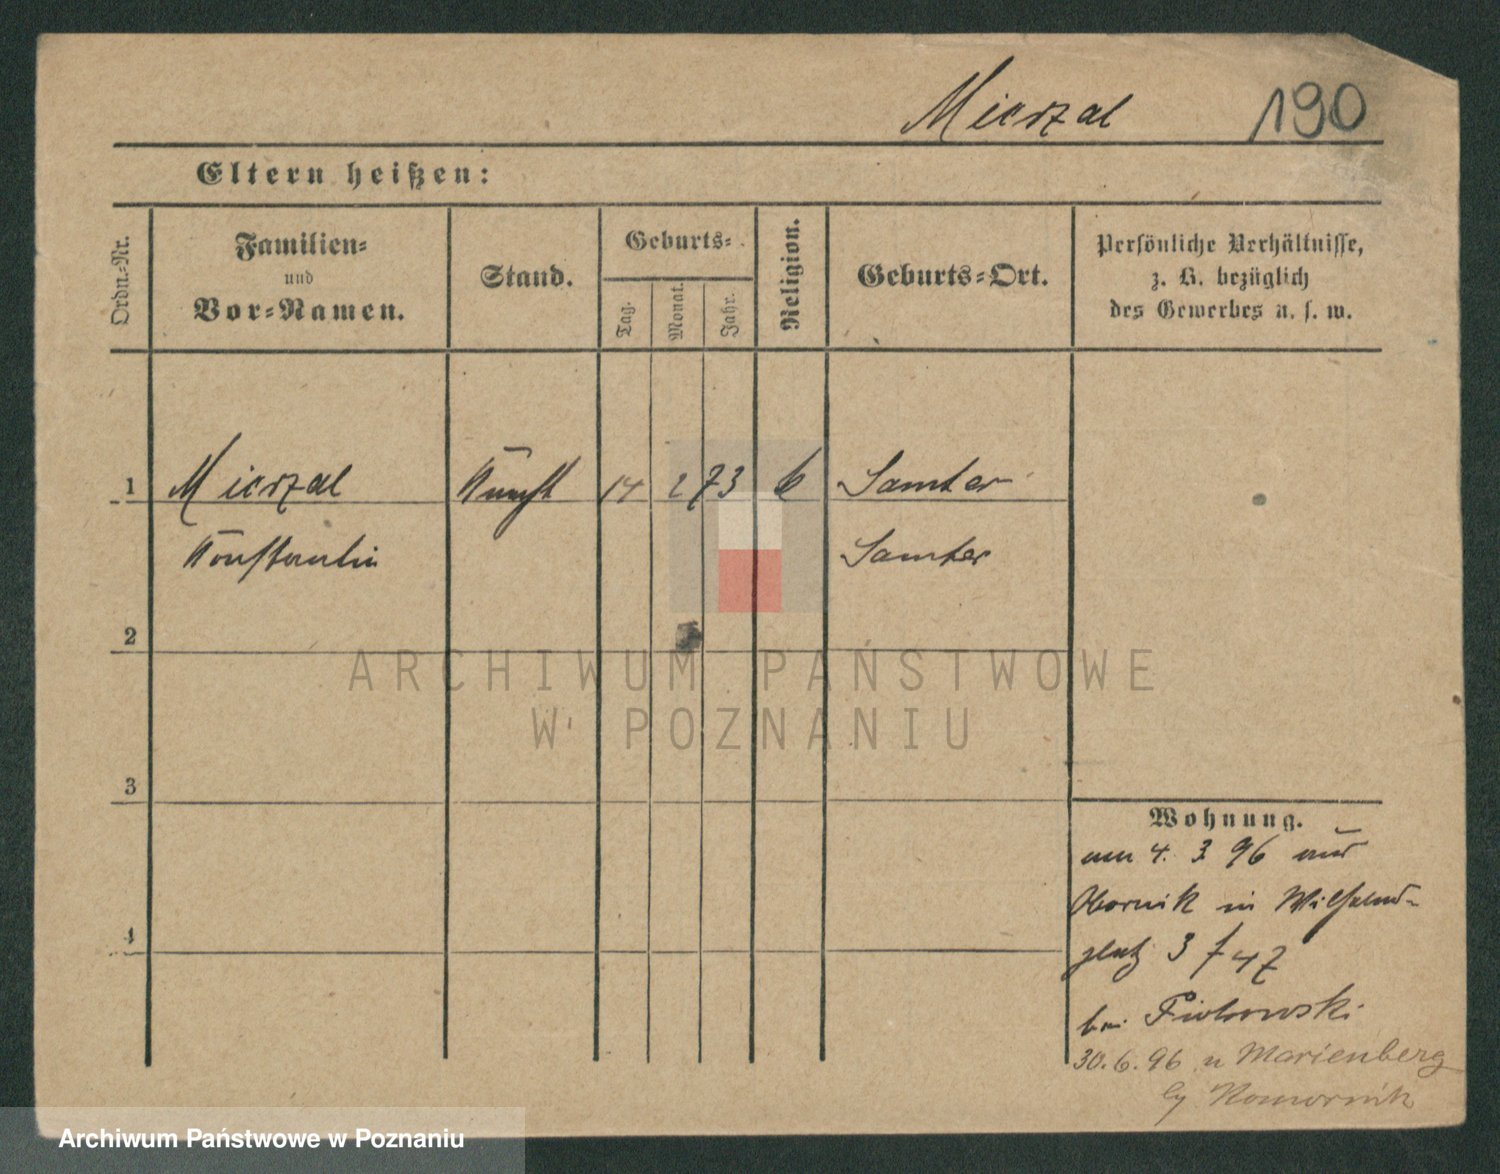 Mierzal 190
Eltern heißen:
Ordn.-Nr.
Familien-
und
Vor-Namen.
Stand.
Geburts-
Tag.
Monat.
Jahr.
Religion.
Geburts-Ort.
Persönliche Verhältnisse,
z. B. bezüglich
des Gewerbes u. s. w.
1 Mierzal 14 2 73 k Samter
Konstantin Samter
2
3
4
Wohnung.
am 4. 3. 96 aus
Obornik in Wilhelms-
platz 3 / 47
bei Piotrowski
30.6.96 n Marienberg
Komornik
ARCHIWUM PAŃSTWOWE
W POZNANIU
Archiwum Państwowe w Poznaniu